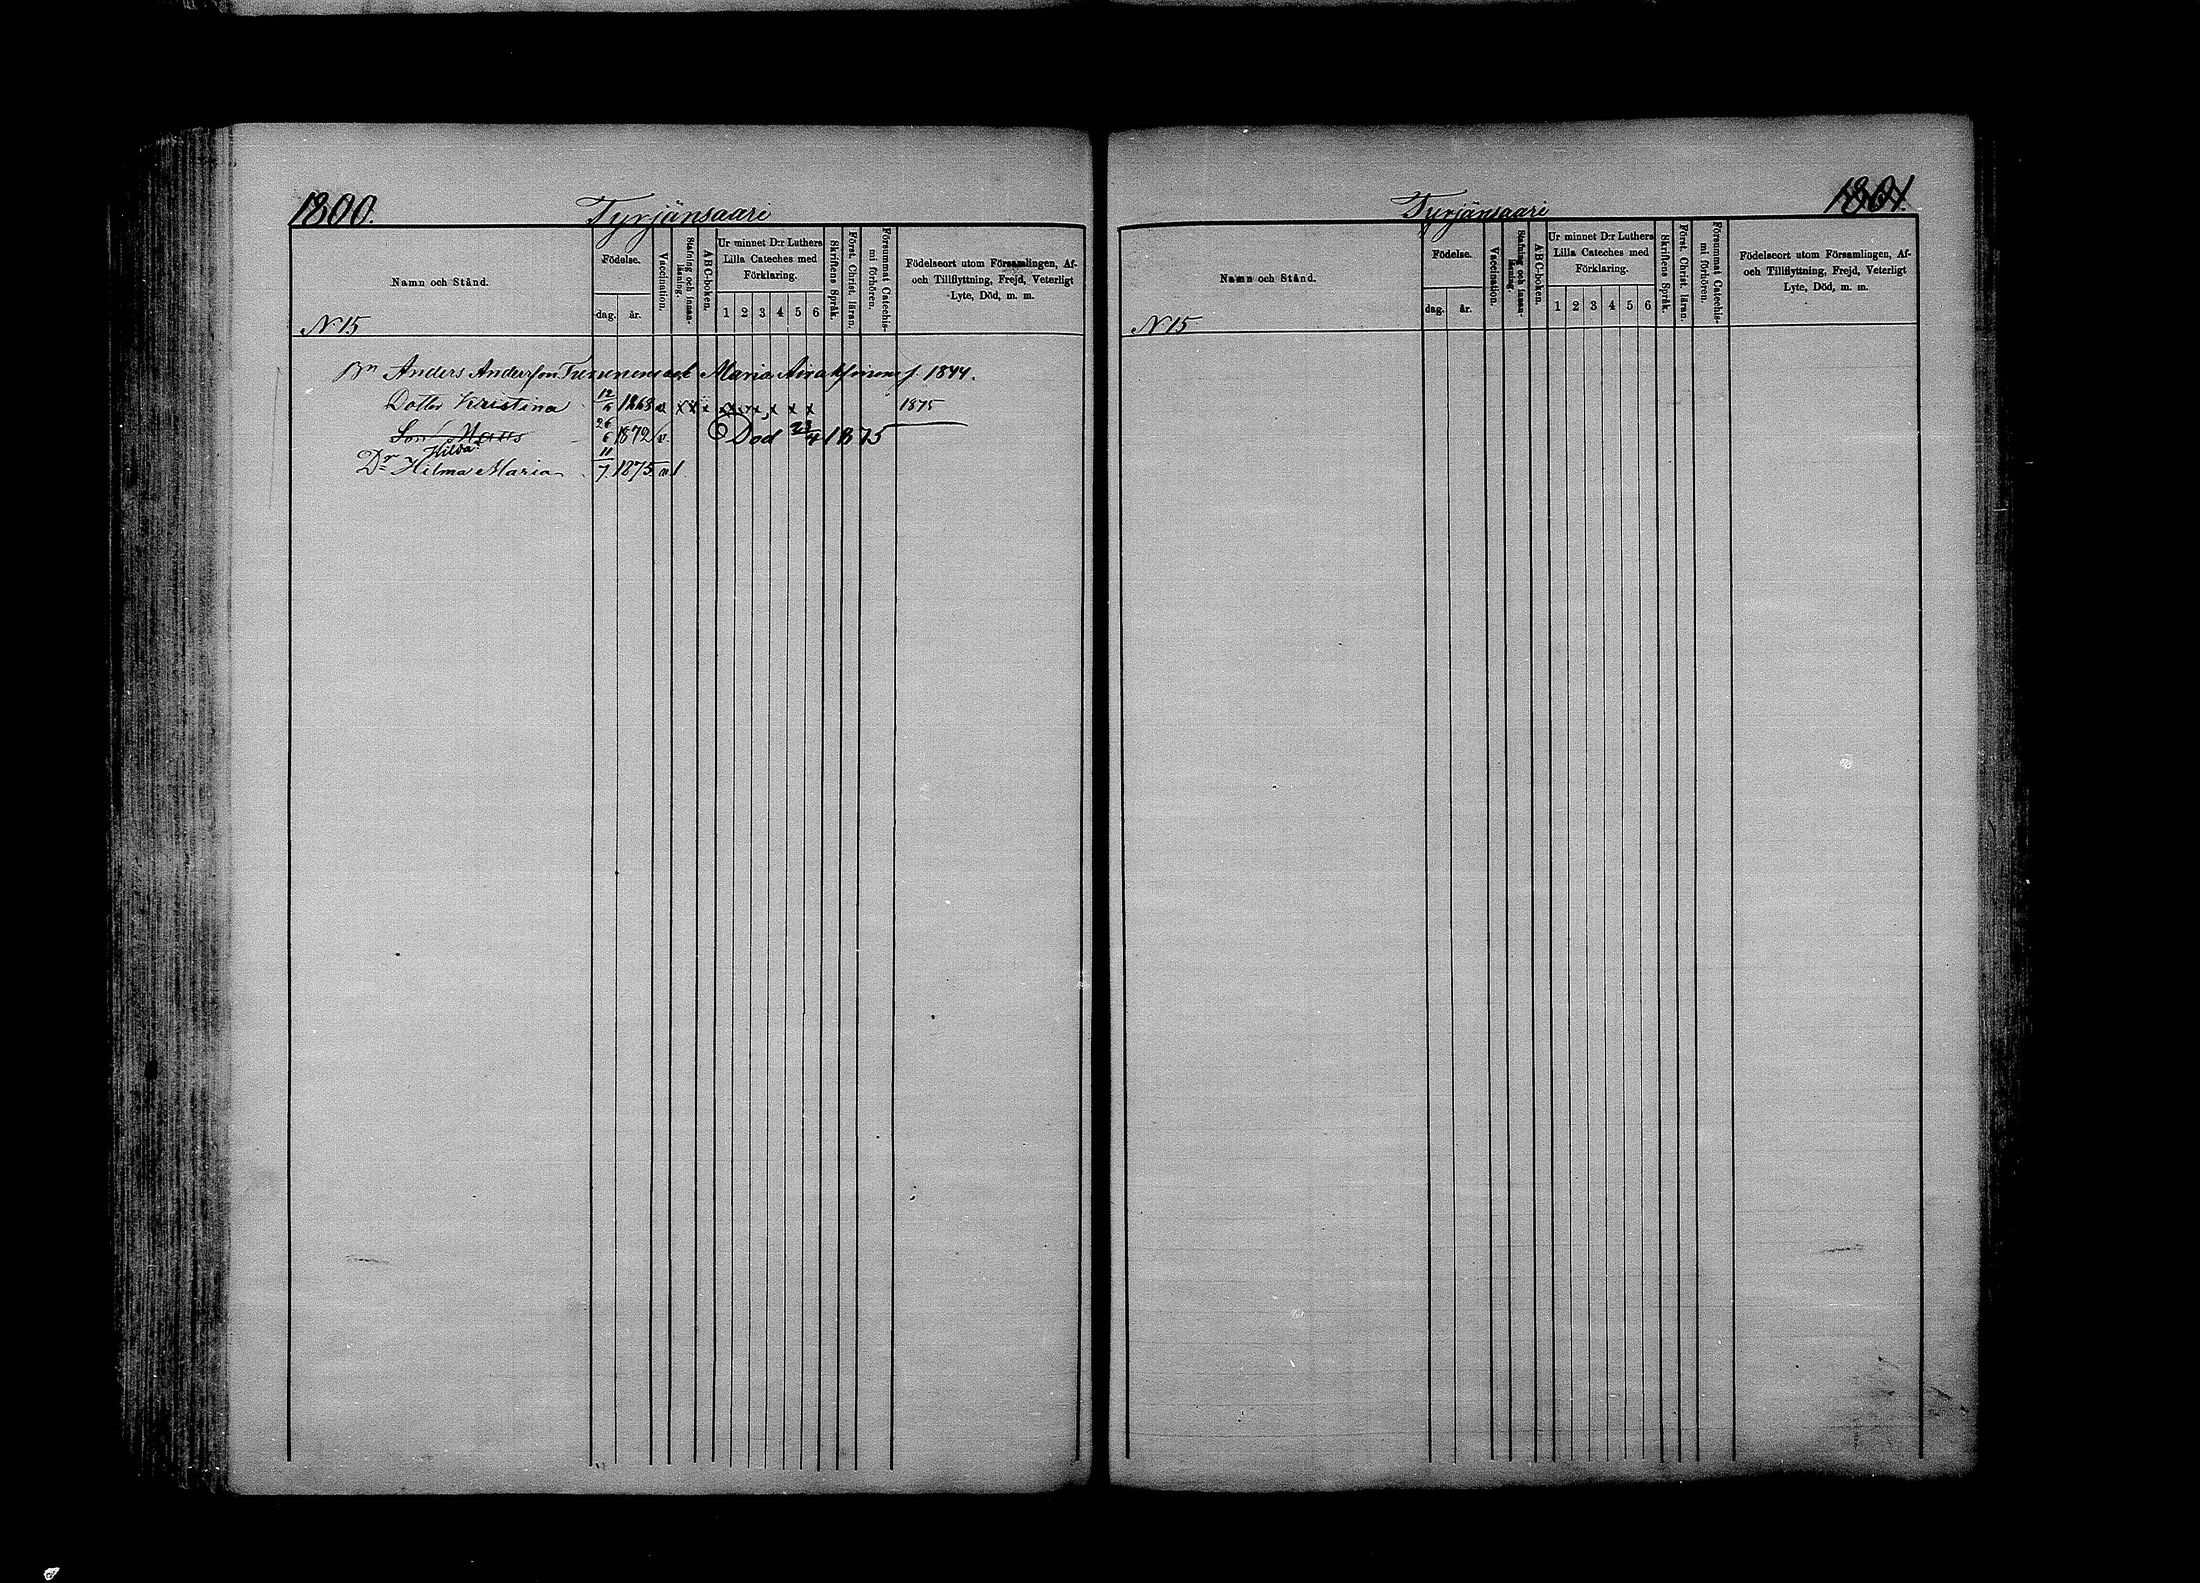 1800.
Tyrjänsaari
Namn och Stånd.
Födelse.
dag.
år.
Vaccination.
Stafning och innan-
läsning.
ABC-boken.
Ur minnet D:r Luthers
Lilla Cateches med
Förklaring.
1 2 3 4 5 6
Skriftens Språk.
Först. Christ. läran.
Försummat Catechis-
mi förhören.
Födelseort utom Församlingen, Af-
och Tillflyttning, Frejd, Veterligt
Lyte, Död, m. m.
N 15
Bn Anders Andersson och Maria f 1844.
Dotter Kristina 12/5 1868 v x x x x x x x x x 1875
Son Matts 26/6 1872 v. Död 23/4 1875
Hilda
Dr Hilma Maria 11/7 1875 v 1
1801.
Tyrjänsaari
Namn och Stånd.
Födelse.
dag.
år.
Vaccination.
Stafning och innan-
läsning.
ABC-boken.
Ur minnet D:r Luthers
Lilla Cateches med
Förklaring.
1 2 3 4 5 6
Skriftens Språk.
Först. Christ. läran.
Försummat Catechis-
mi förhören.
Födelseort utom Församlingen, Af-
och Tillflyttning, Frejd, Veterligt
Lyte, Död, m. m.
N 15